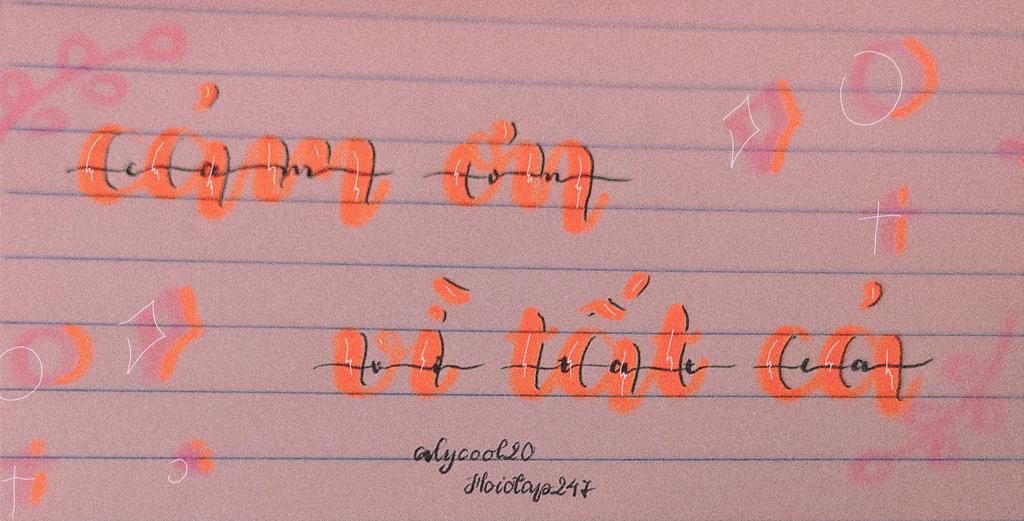 cảm ơn
vì tất cả
alycool20
Hoidap247